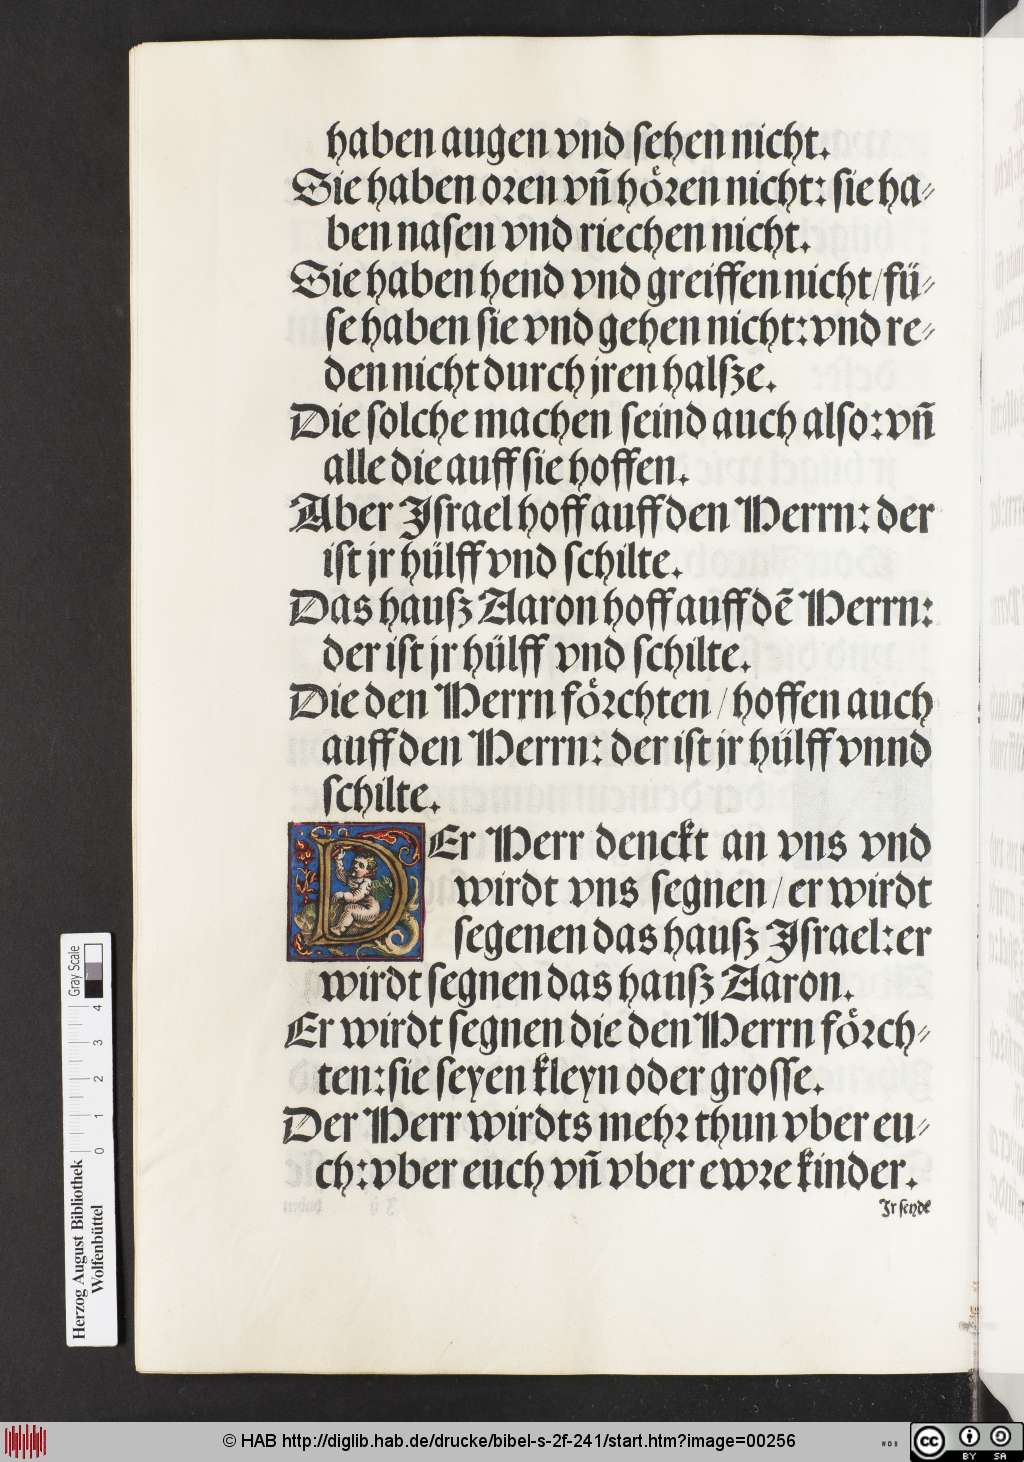 haben augen vnd sehen nicht.
Sie haben oren vñ hoͤren nicht: sie ha⸗
ben nasen vnd riechen nicht.
Sie haben hend vnd greiffen nicht/fü⸗
se haben sie vnd gehen nicht: vnd re⸗
den nicht durch jren halsze.
Die solche machen seind auch also: vñ
alle die auff sie hoffen.
Aber Jsrael hoff auff den Herrn: der
ist jr hülff vnd schilte.
Das hausz Aaron hoff auff dẽ Herrn:
der ist jr hülff vnd schilte.
Die den Herrn foͤrchten / hoffen auch
auff den Herrn: der ist jr hülff vnnd
schilte.
DEr Herr denckt an vns vnd
wirdt vns segnen / er wirdt
segenen das hausz Jsrael: er
wirdt segnen das hansz Aaron.
Er wirdt segnen die den Herrn foͤrch⸗
ten: sie seyen kleyn oder grosse.
Der Herr wirdts mehr thun vber eu⸗
ch: vber euch vñ vber ewre kinder.
Jr seyde
Herzog August Bibliothek
Wolfenbüttel
0 1 2 3 4
Gray Scale
© HAB http://diglib.hab.de/drucke/bibel-s-2f-241/start.htm?image=00256
WDB
cc BY SA